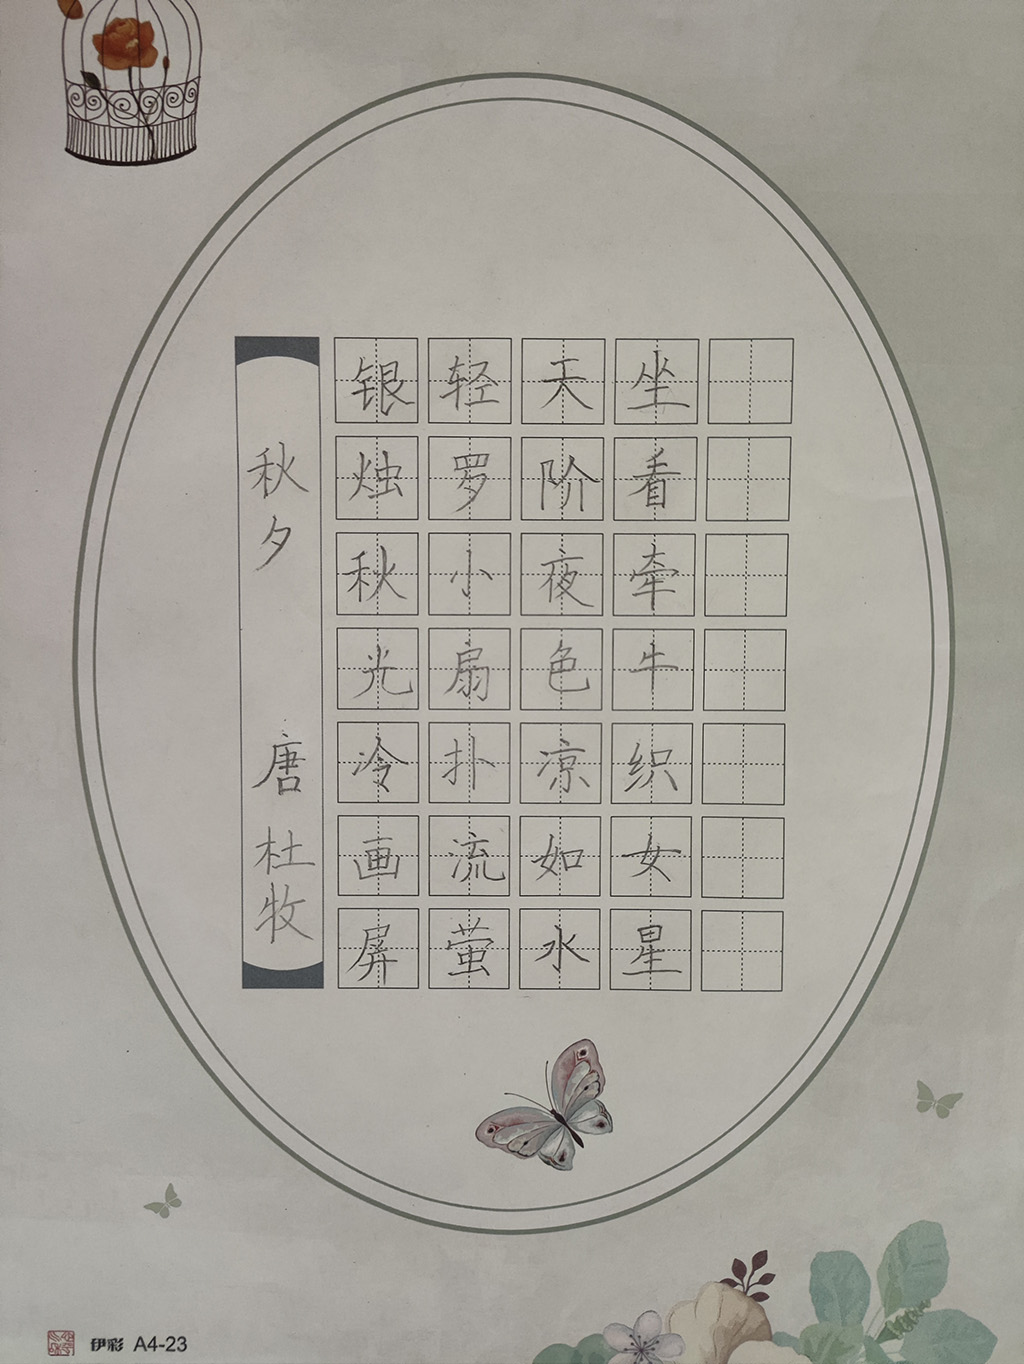 秋夕
唐 杜牧
银烛秋光冷画屏
轻罗小扇扑流萤
天阶夜色凉如水
坐看牵牛织女星
伊彩 A4-23